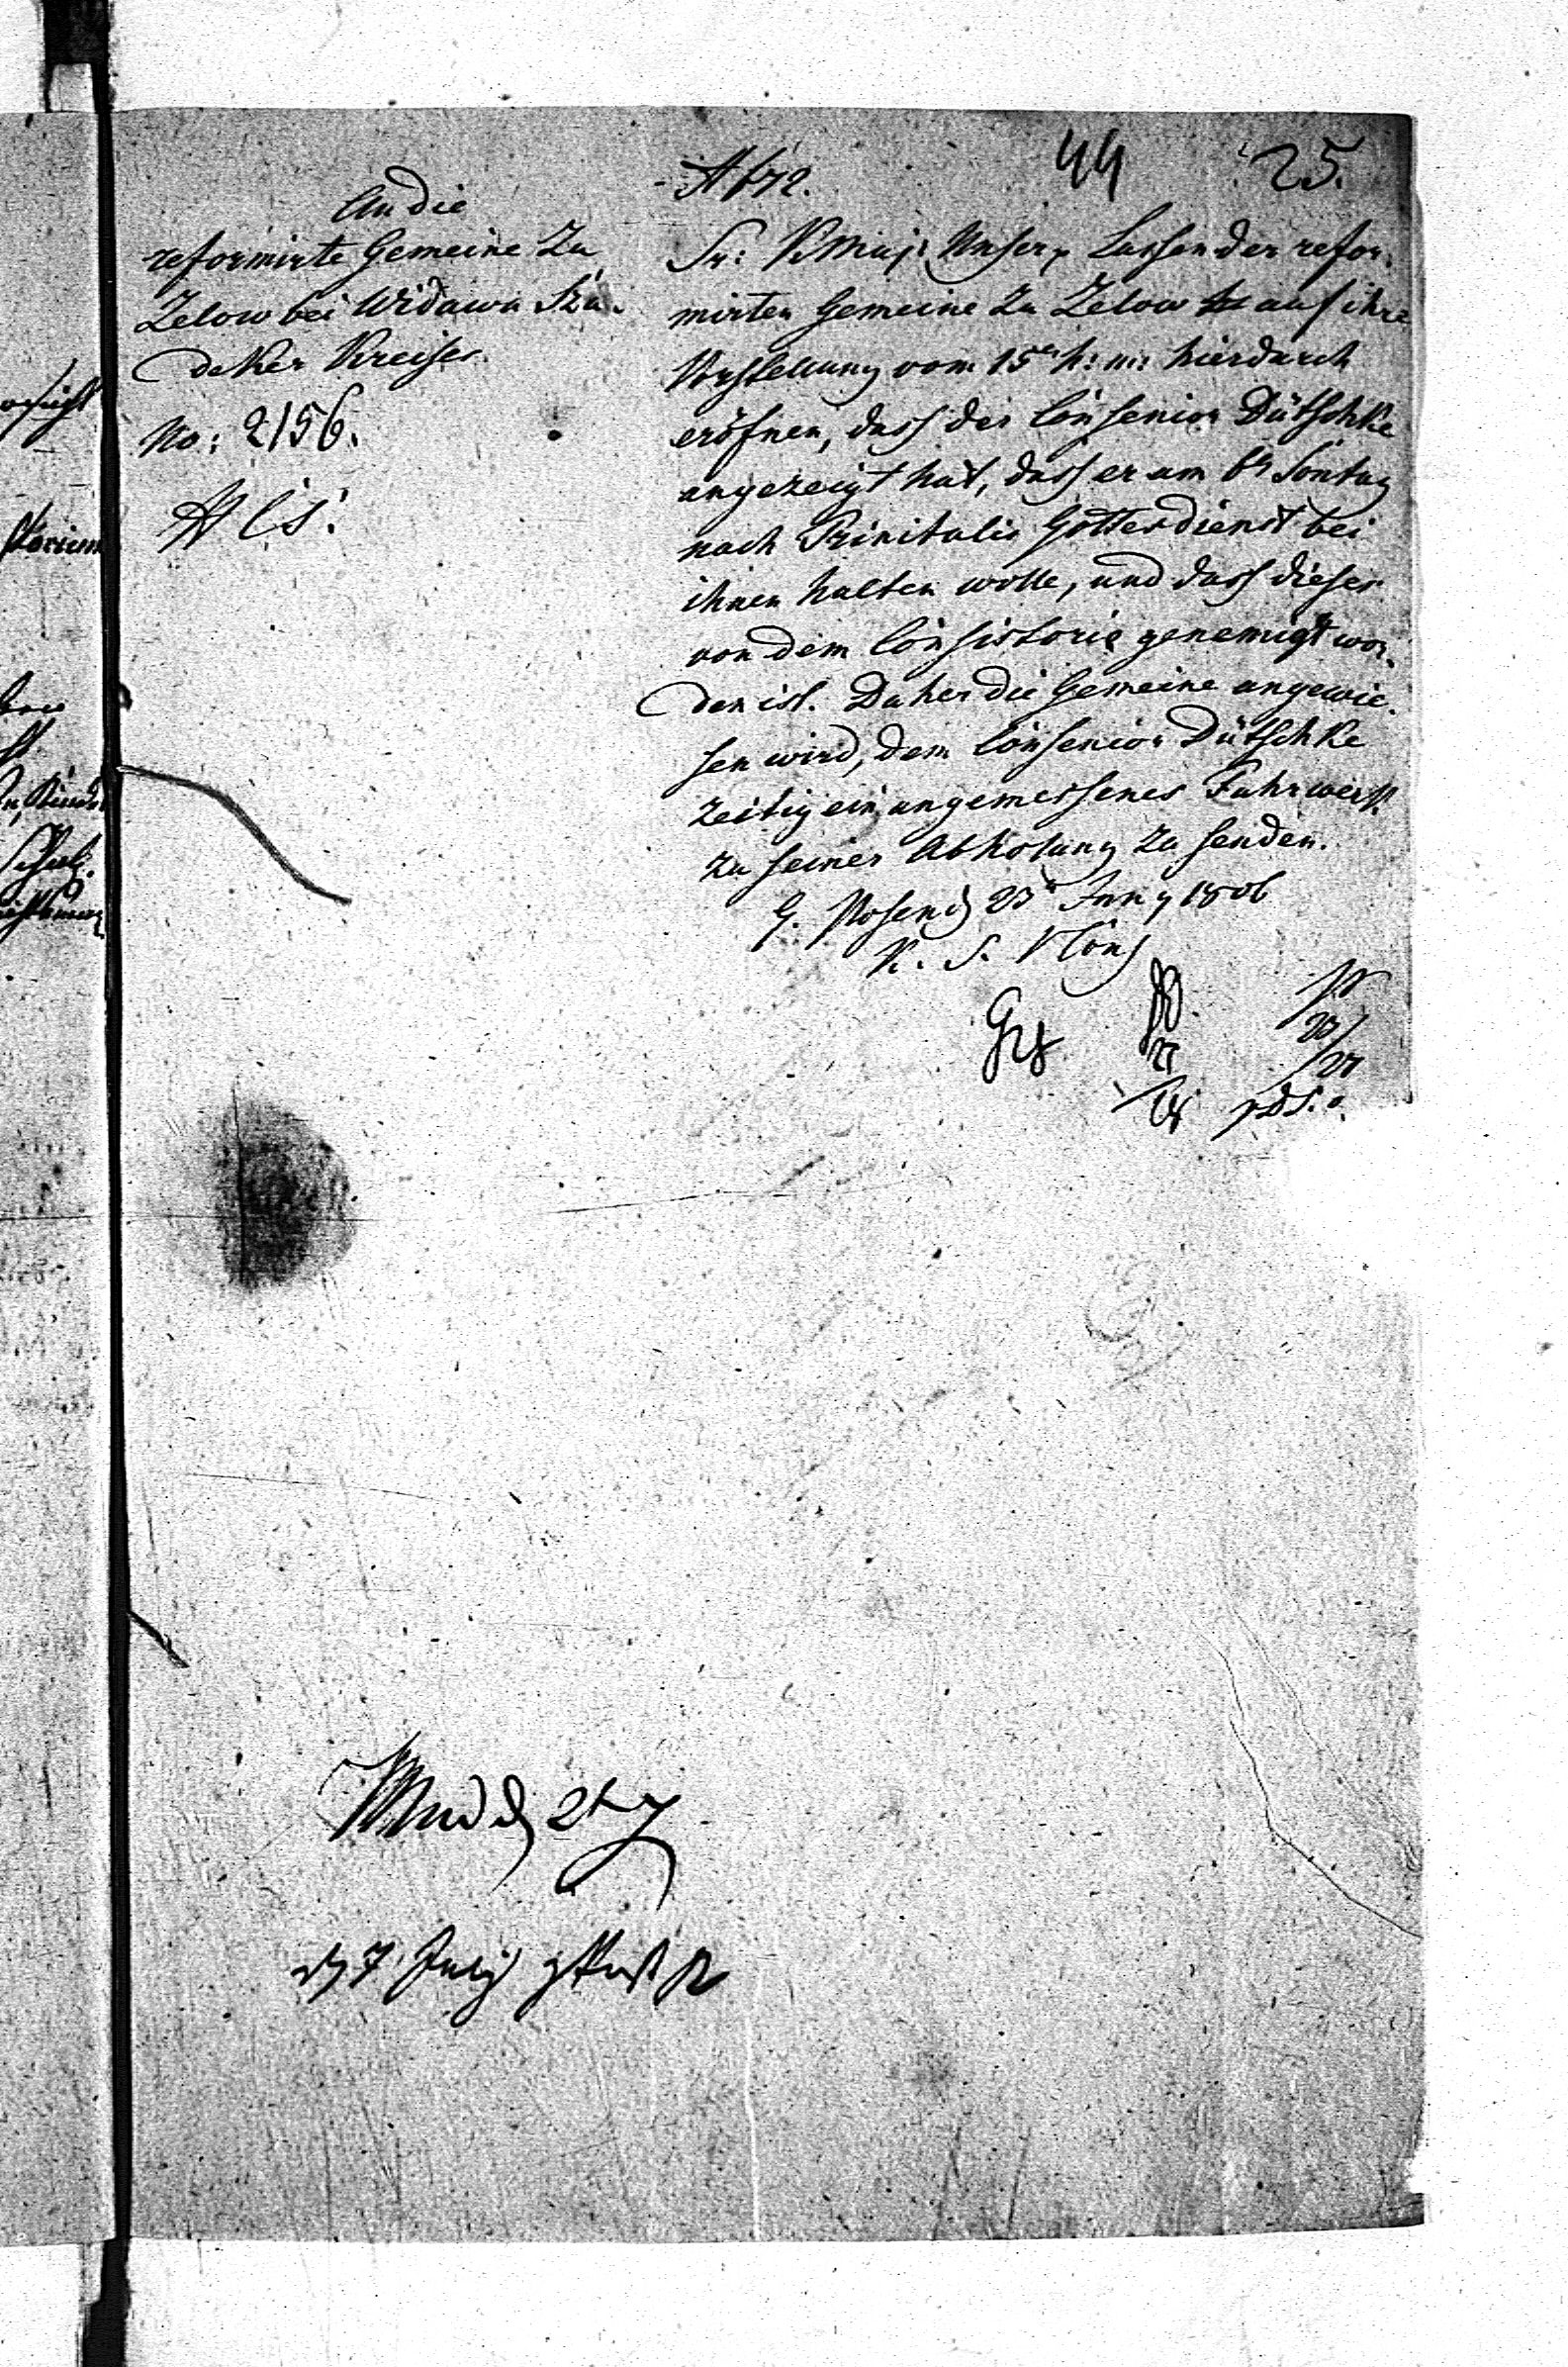 44 25.
An die
reformirte Gemeine zu
Zelow bei Widawa Sza-
deker Kreises.
No: 2156.
Sr: K Maj: Unser p Lassen der refor-
mirten Gemeine zu Zelow auf ihre
Vorstellung vom 15ten h: m: hierdurch
eröfnen, dass der Con̄senior Dütschke
angezeigt hat, dass er am 6n Sontag
nach Trinitatis Gottesdienst bei
ihnen halten wolle, und dass dieses
von dem Con̄sistorio genemigt wor-
den ist. Daher die Gemeine angewie-
sen wird, dem Con̄senior Dütschke
zeitig ein angemessenes Fuhrwerk
zu seiner Abholung zu senden.
G. Posen d 23 Juny 1806
K. S. Con̄s
7 July